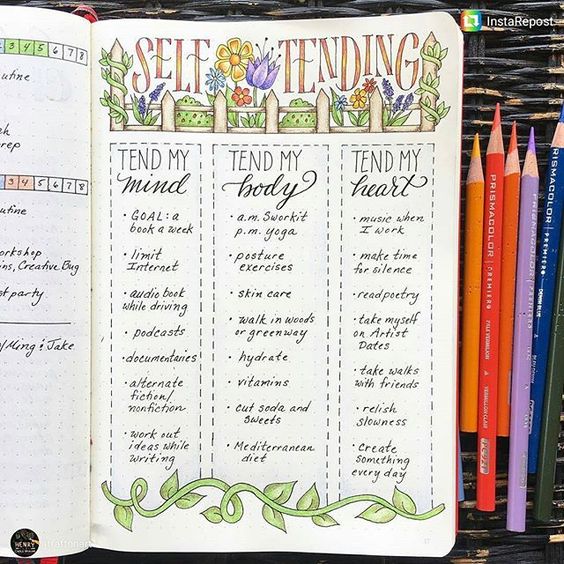 InstaRepost
3 4 5 6 7 8
utine
rep
3 4 5 6 7 8
utine
orkshop
ns, Creative Bug
st party
/Ming & Jake
SELF TENDING
TEND MY
mind
• GOAL: a
book a week
• limit
Internet
• audio book
while driving
• podcasts
• documentaires
• alternate
fiction/
nonfiction
• work out
ideas while
writing
TEND MY
body
• a.m. Sworkit
p.m. yoga
• posture
exercises
• skin care
• walk in woods
or greenway
• hydrate
• vitamins
• cut soda and
sweets
• Mediterranean
diet
TEND MY
heart
• music when
I work
• make time
for silence
• read poetry
• take myself
on Artist
Dates
• take walks
with friends
• relish
slowness
• create
something
every day
17
PRISMACOLOR
PREMIER
PRISMACOLOR
PREMIER
HENRY